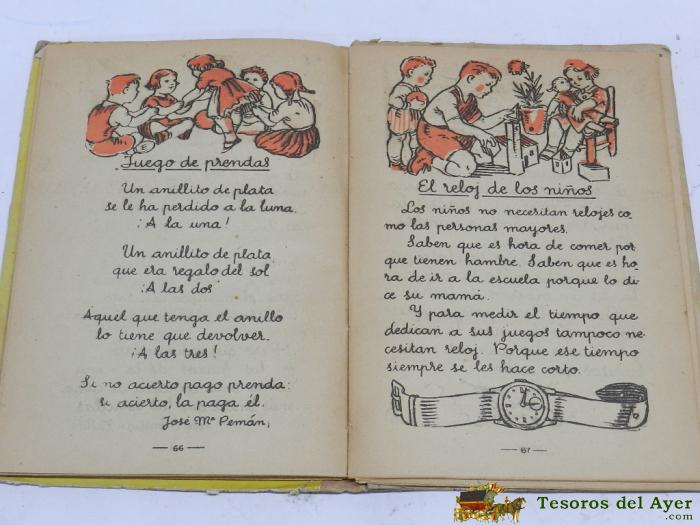 Juego de prendas
Un anillito de plata
se le ha perdido a la luna.
¡A la una!
Un anillito de plata
que era regalo del sol
¡A las dos
Aquel que tenga el anillo
lo tiene que devolver.
¡A las tres!
Si no acierto pago prenda:
si acierto, la paga él.
José Mª Pemán,
— 66 —
El reloj de los niños
Los niños no necesitan relojes co-
mo las personas mayores.
Saben que es hora de comer por
que tienen hambre. Saben que es ho-
ra de ir a la escuela porque lo di
ce su mamá.
Y para medir el tiempo que
dedican a sus juegos tampoco ne-
cesitan reloj. Porque ese tiempo
siempre se les hace corto.
— 67 —
Tesoros del Ayer
.com